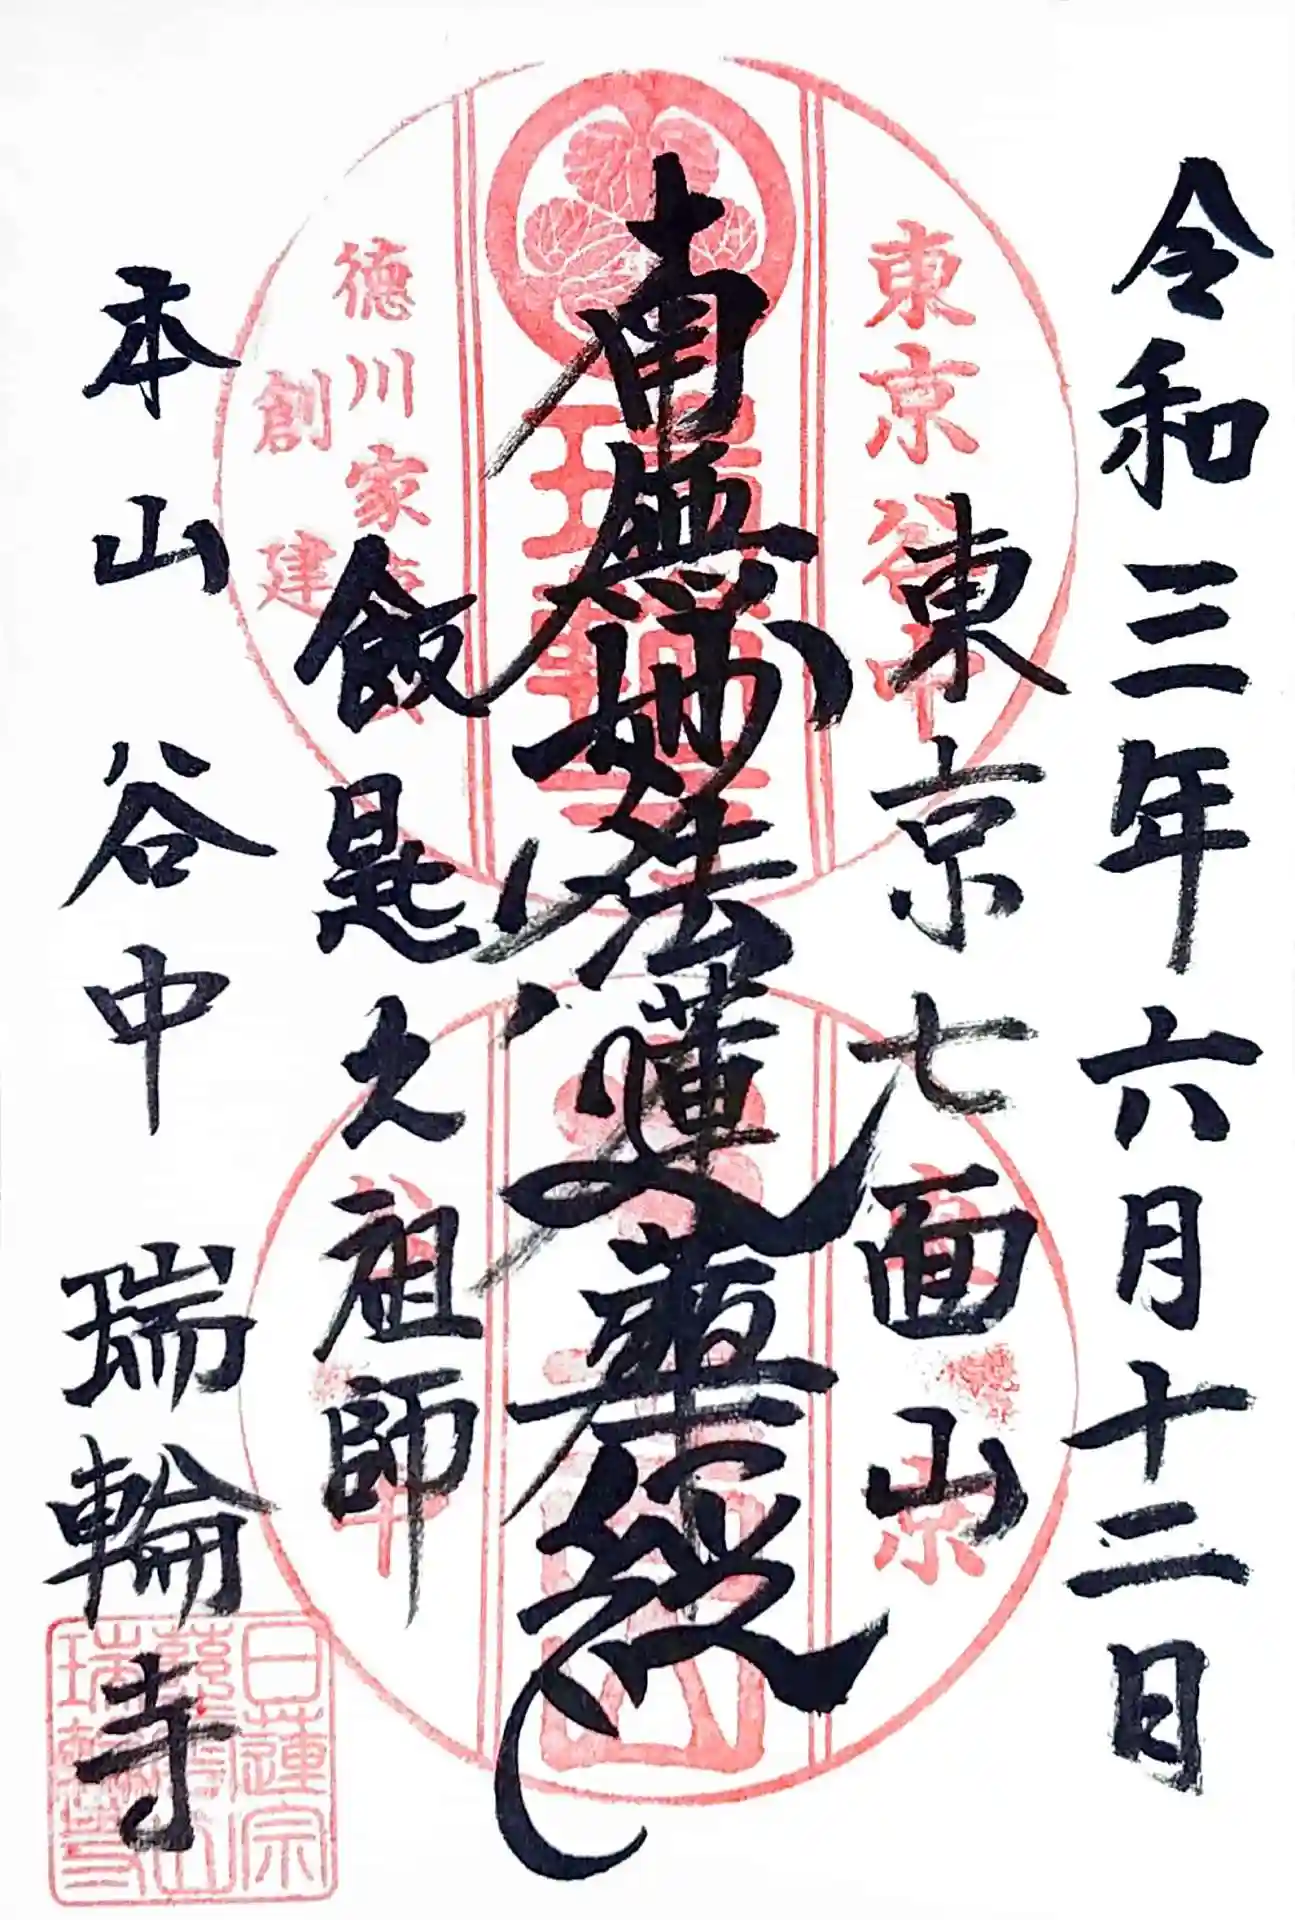 令和三年六月十二日
東京七面山
南無妙法蓮華経
飯匙之祖師
本山谷中瑞輪寺
東京谷中
瑞輪寺
徳川家康
創建
日蓮宗
慈雲山
瑞輪寺